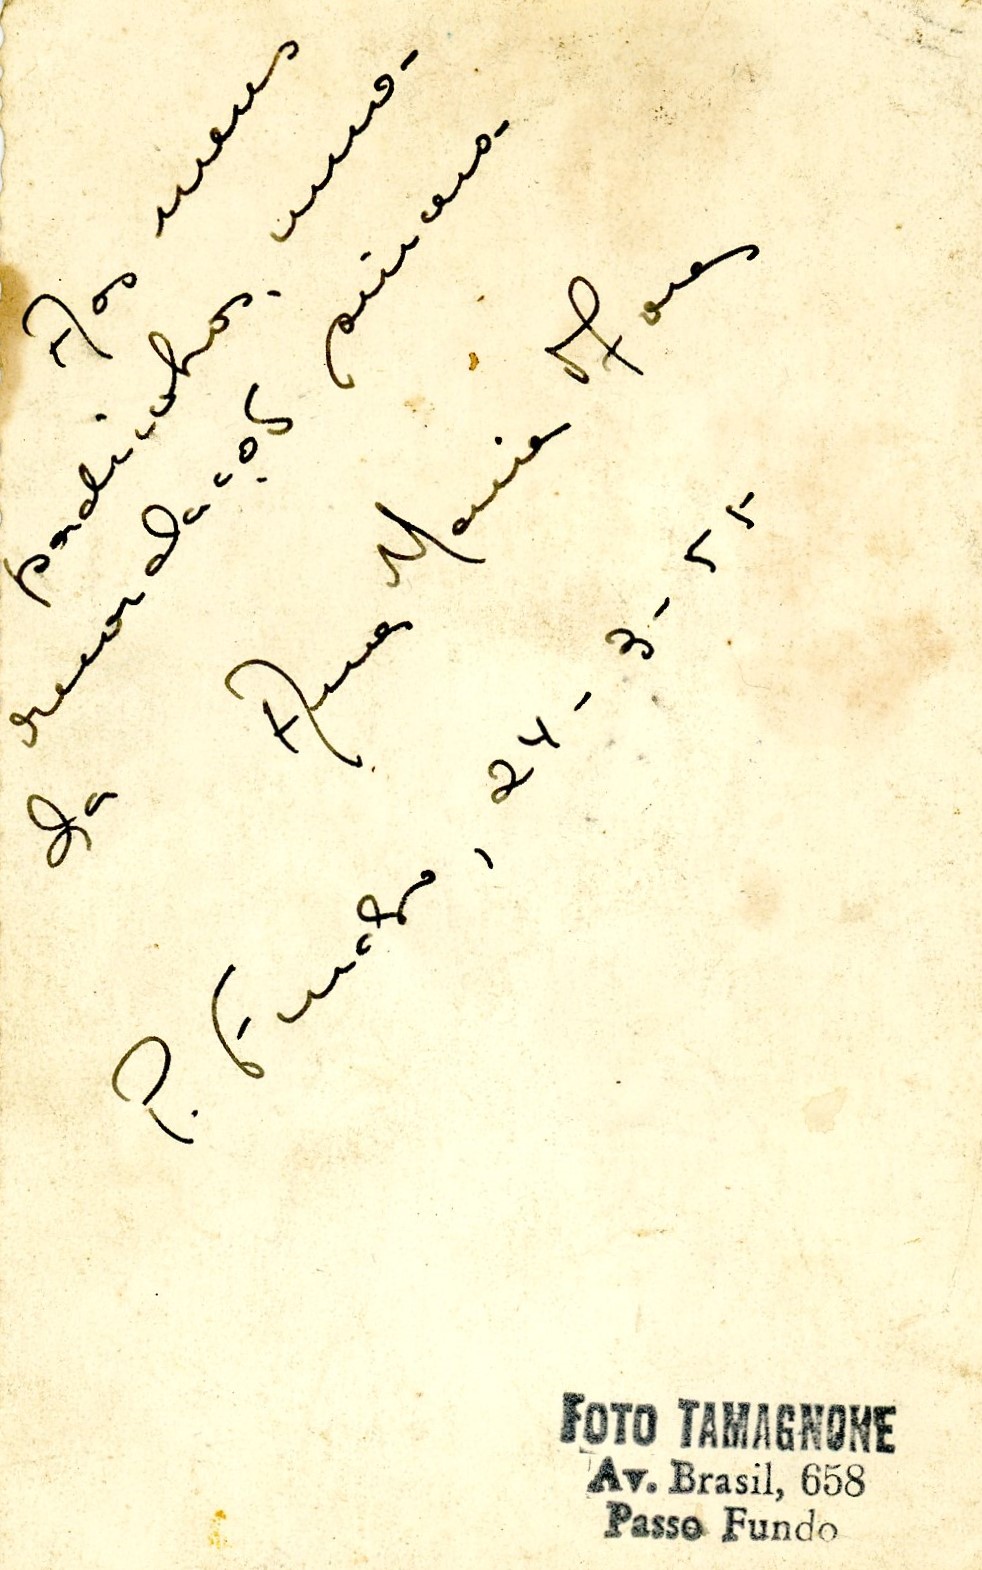 Aos meus
padrinhos, uma
recordação
da Ana Maria
P. Fundo, 24-3-55
FOTO TAMAGNONE
Av. Brasil, 658
Passo Fundo